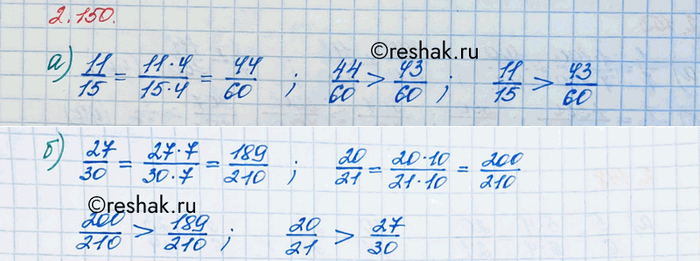 2.150.
©reshak.ru
а) 11/15 = 11·4/15·4 = 44/60 ; 44/60 > 43/60 ; 11/15 > 43/60
б) 27/30 = 27·7/30·7 = 189/210 ; 20/21 = 20·10/21·10 = 200/210
©reshak.ru
200/210 > 189/210 ; 20/21 > 27/30